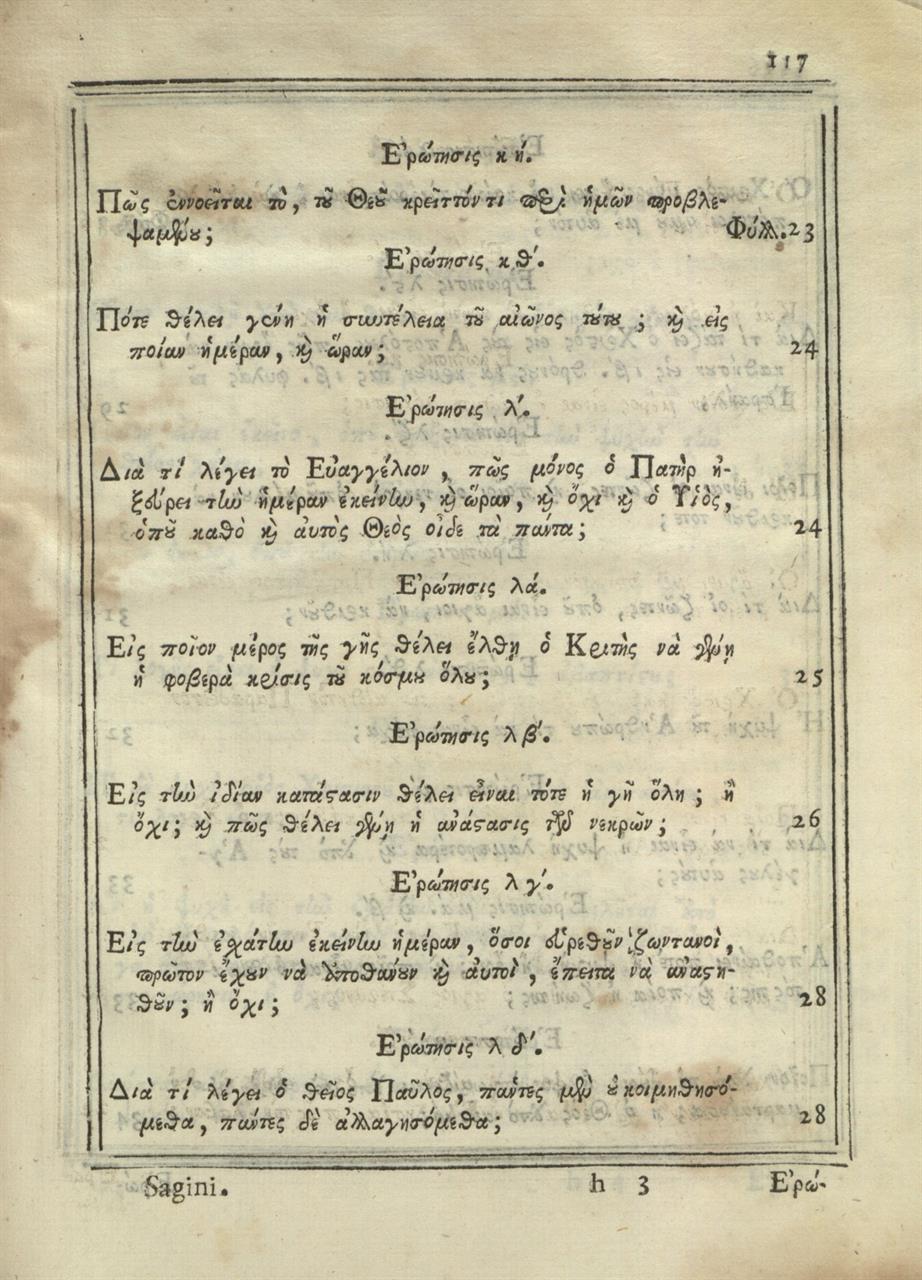 117
Ἐρώτησις κή.
Πῶς ἐννοεῖται τὸ, τοῦ Θεοῦ κρεῖττόν τι περὶ ἡμῶν προβλε-
ψαμένου; Φύλλ. 23
Ἐρώτησις κθ΄.
Πότε θέλει γένῃ ἡ συντέλεια τοῦ αἰῶνος τούτου; καὶ εἰς
ποίαν ἡμέραν, καὶ ὥραν; 24
Ἐρώτησις λ΄.
Διὰ τί λέγει τὸ Εὐαγγέλιον, πῶς μόνος ὁ Πατὴρ ἠ-
ξεύρει τὴν ἡμέραν ἐκείνην, καὶ ὥραν, καὶ ὄχι καὶ ὁ Υἱὸς,
ὁποῦ καθὸ καὶ αὐτὸς Θεὸς οἶδε τὰ πάντα; 24
Ἐρώτησις λά.
Εἰς ποῖον μέρος τῆς γῆς θέλει ἔλθῃ ὁ Κριτὴς νὰ γένῃ
ἡ φοβερὰ κρίσις τοῦ κόσμου ὅλου; 25
Ἐρώτησις λβ΄.
Εἰς τὴν ἰδίαν κατάστασιν θέλει εἶναι τότε ἡ γῆ ὅλη; ἢ
ὄχι; καὶ πῶς θέλει γένῃ ἡ ἀνάστασις τῶν νεκρῶν; 26
Ἐρώτησις λγ΄.
Εἰς τὴν ἐσχάτην ἐκείνην ἡμέραν, ὅσοι εὑρεθοῦν ζωντανοὶ,
πρῶτον ἔχουν νὰ ἀποθάνουν καὶ αὐτοὶ, ἔπειτα νὰ ἀναστη-
θοῦν; ἢ ὄχι; 28
Ἐρώτησις λδ΄.
Διὰ τί λέγει ὁ θεῖος Παῦλος, πάντες μὲν οὐ κοιμηθησό-
μεθα, πάντες δὲ ἀλλαγησόμεθα; 28
Sagini. h 3 Ἐρώ-